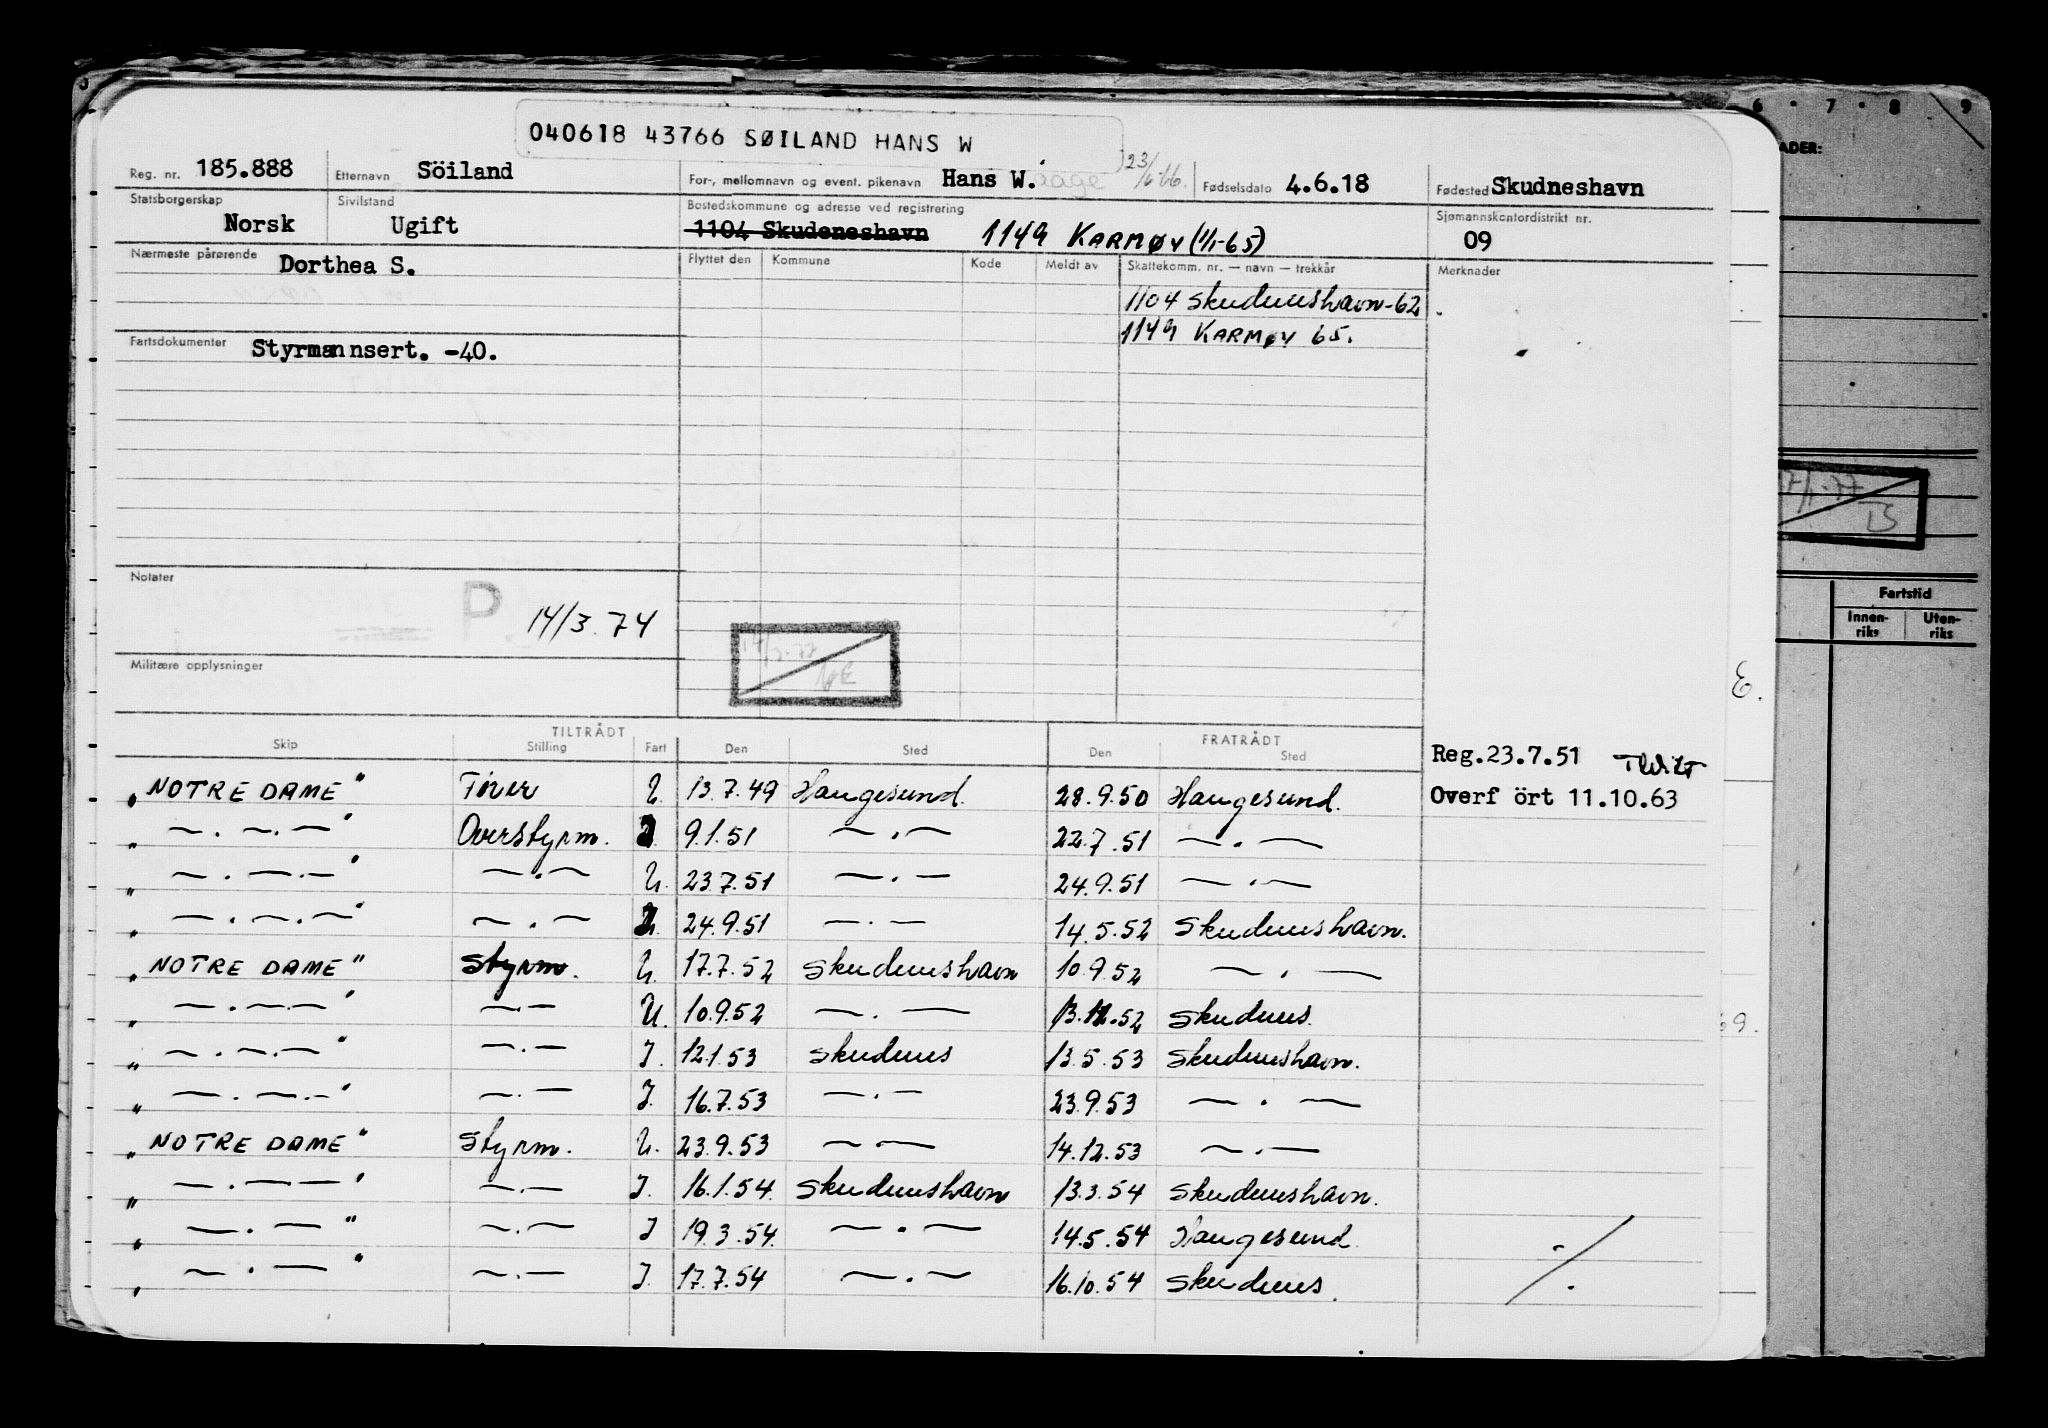 040618 43766 SØILAND HANS W
Reg. nr. 185.888 Etternavn Söiland For-, mellomnavn og event. pikenavn Hans W. Fødselsdato 4.6.18 Fødested Skudneshavn
Statsborgerskap Norsk Sivilstand Ugift Bostedskommune og adresse ved registrering 1104 Skudeneshavn 1149 KARMØY (1/1-65) Sjømannskontordistrikt nr. 09
Nærmeste pårørende Dorthea S. Flyttet den Kommune Kode Meldt av Skattekomm. nr. — navn — trekkår Merknader
1104 Skudeneshavn-62
1149 KARMØY 65.
Fartsdokumenter Styrmannsert. -40.
Notater P. 14/3.74
Militære opplysninger
TILTRÅDT FRATRÅDT
Skip Stilling Fart Den Sted Den Sted
Reg.23.7.51
Overf ört 11.10.63
„NOTRE DAME" Fører U. 13.7.49 Haugesund. 28.9.50 Haugesund.
„ — . — . — " Overstyrm. 9.1.51 — . — 22.7.51 — . —
„ — . — . — " — . — U. 23.7.51 — . — 24.9.51 — . —
„ — . — . — " — . — 24.9.51 — . — 14.5.52 Skudeneshavn.
„NOTRE DAME" Styrm. U. 17.7.52 Skudeneshavn 10.9.52 — . —
„ — . — . — " — . — U. 10.9.52 — . — 13.12.52 Skudenes.
„ — . — . — " — . — I. 12.1.53 Skudenes 13.5.53 Skudeneshavn.
„ — . — . — " — . — I. 16.7.53 — . — 23.9.53 — . —
„NOTRE DAME" Styrm. U. 23.9.53 — . — 14.12.53 — . —
„ — . — — " — . — I. 16.1.54. Skudeneshavn 13.3.54 Skudeneshavn.
„ — . — " — . — I 19.3.54. — . — 14.5.54 Haugesund
„ — . — " — . — I. 17.7.54 — . — 16.10.54 Skudenes.
6 . 7 . 8 . 9
ADER:
Fartstid
Innen-
riks
Uten-
riks